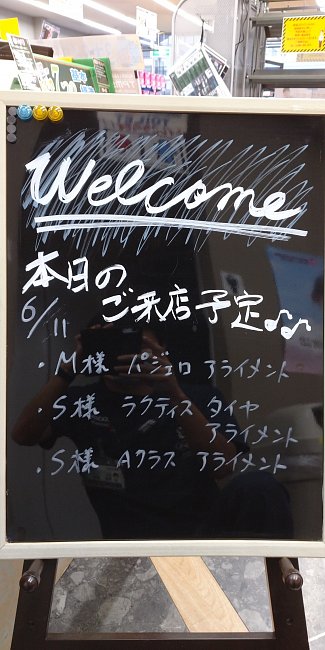 Welcome
本日の
6/11
ご来店予定♪♫
・M様 パジェロ アライメント
・S様 ラクティス タイヤ
アライメント
・S様 Aクラス アライメント